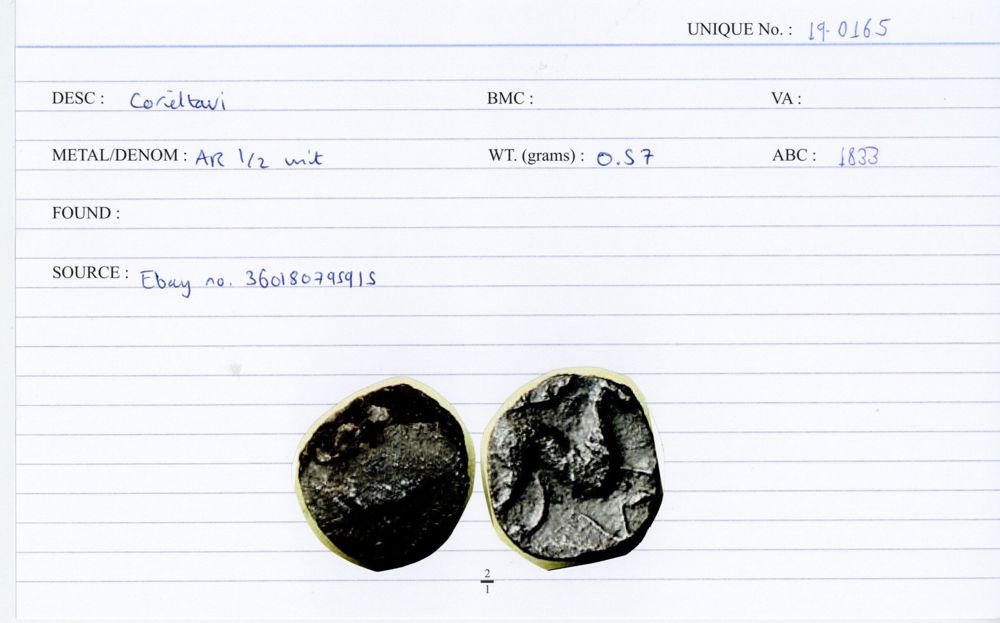 UNIQUE No. : 19-0165
DESC : Corieltavi BMC : VA :
METAL/DENOM : AR 1/2 unit WT. (grams) : 0.57 ABC : 1833
FOUND :
SOURCE : Ebay no. 360180795915
2
1